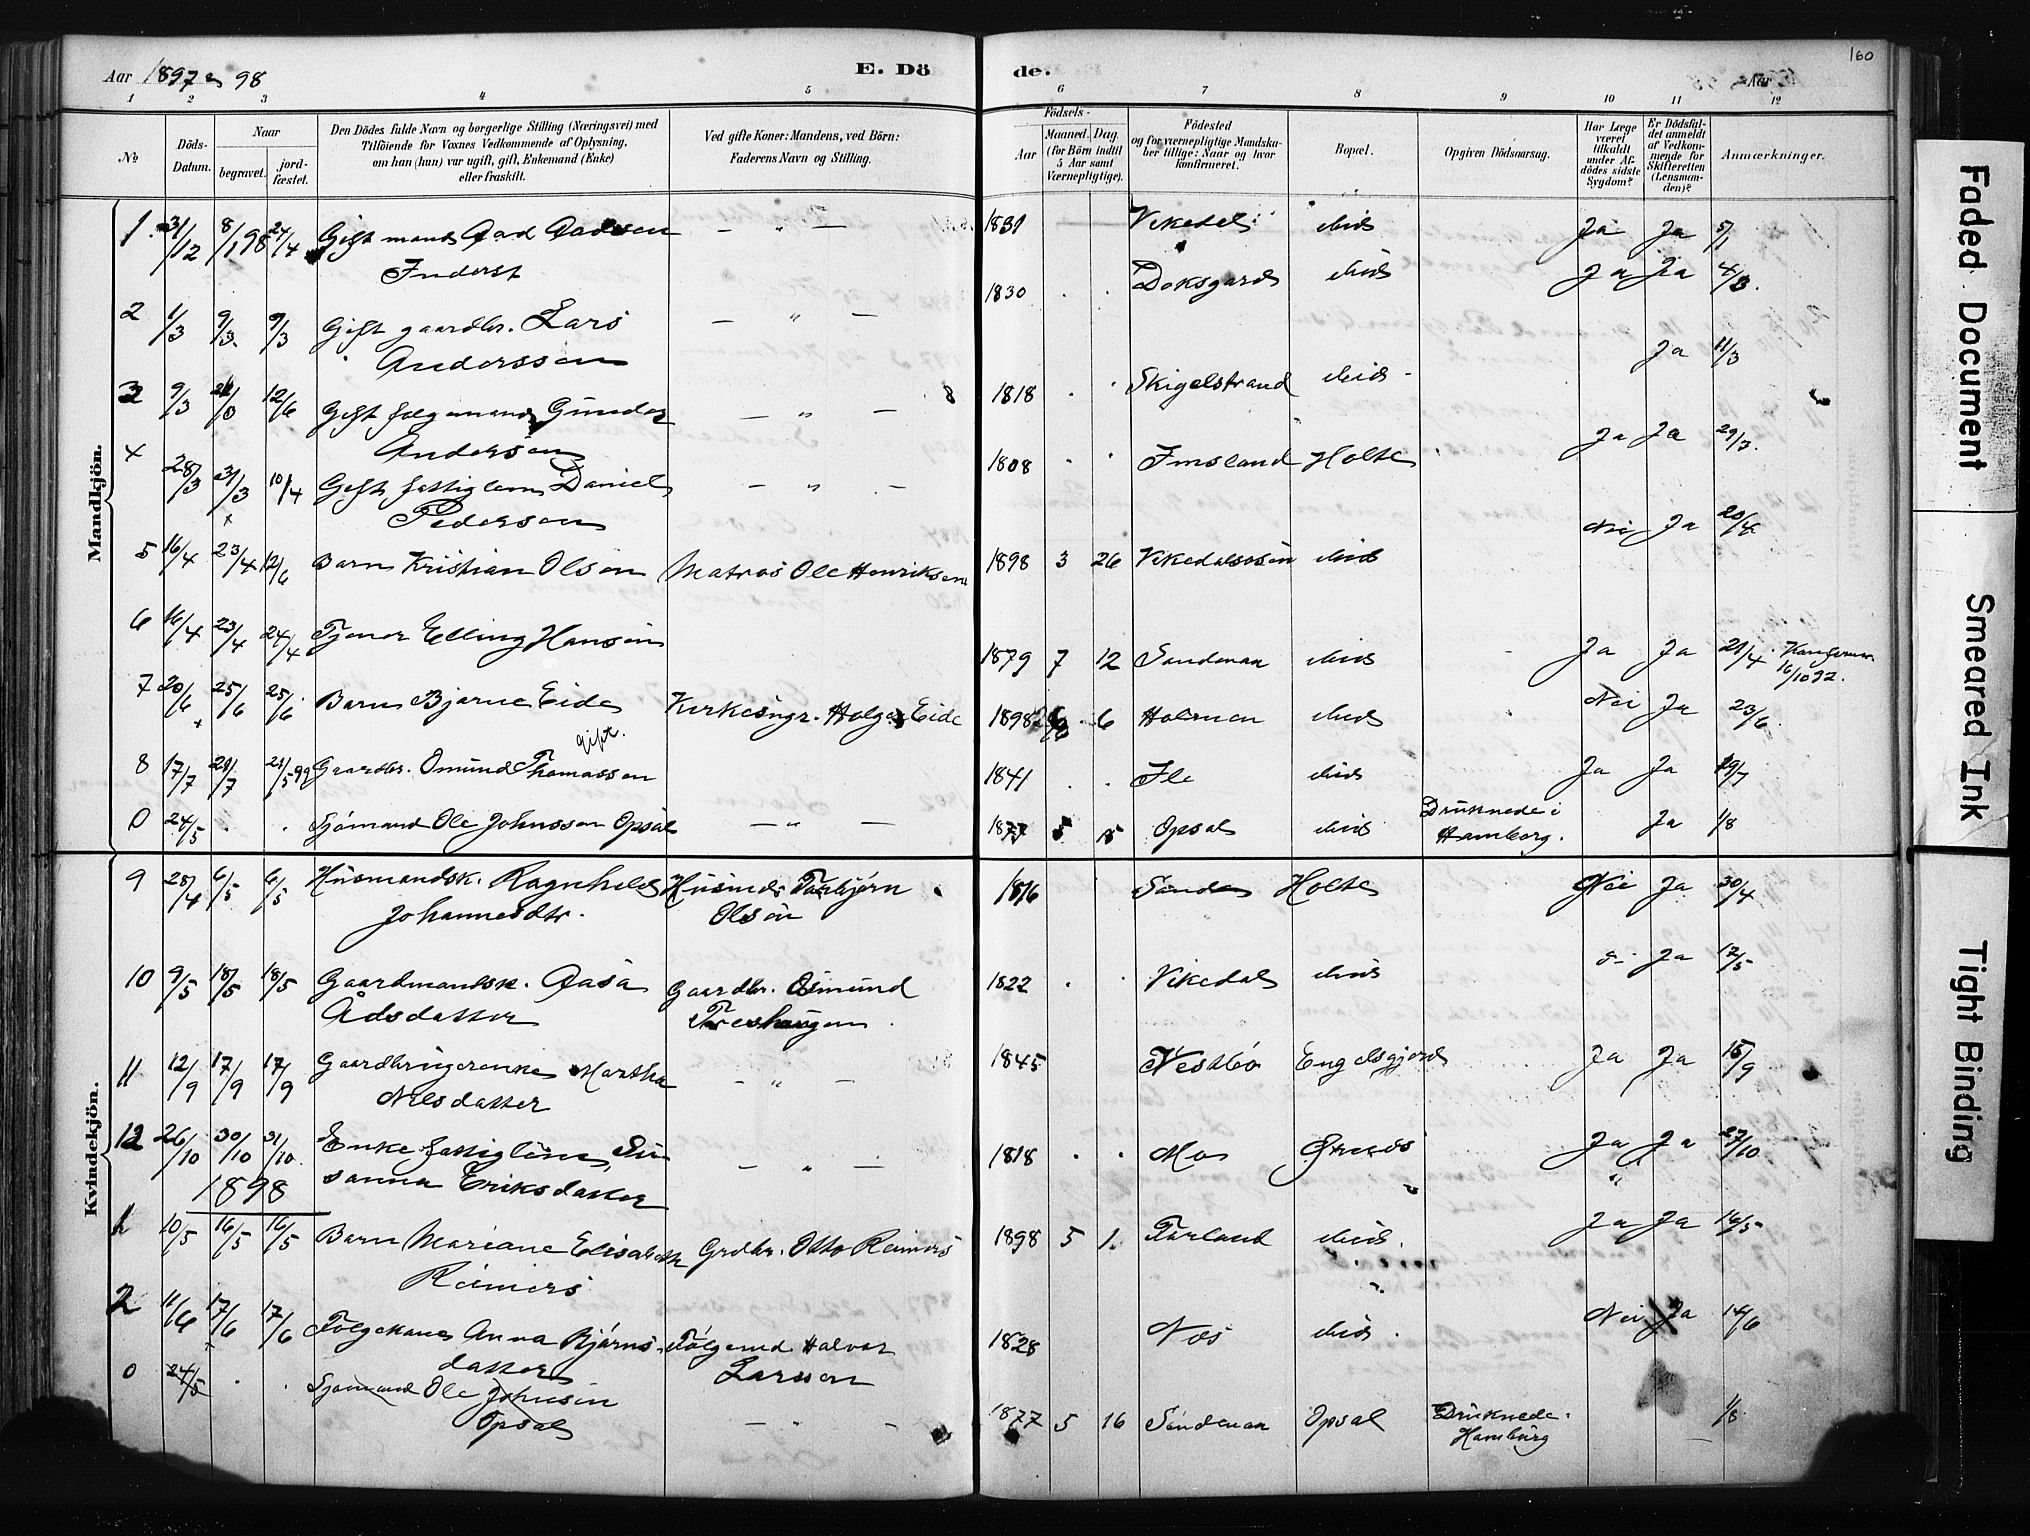 160
Aar 1897 & 98 E. Dö de. Aar
1 2 3 4 5 6 7 8 9 10 11 12
No
Döds-Datum.
Naar
begravet. jord-fæstet.
Den Dödes fulde Navn og borgerlige Stilling (Næringsvei) med
Tilföiende for Voxnes Vedkommende af Oplysning,
om han (hun) var ugift, gift, Enkemand (Enke)
eller fraskilt.
Ved gifte Koner: Mandens, ved Börn:
Faderens Navn og Stilling.
Födsels-
Aar Maaned. Dag.
(for Börn indtil
5 Aar samt
Værnepligtige).
Födested
og for værnepligtige Mandska-
ber tillige: Naar og hvor
konfirmeret.
Bopæl.
Opgiven Dödsaarsag.
Har Læge
været
tilkaldt
under Af-
dödes sidste
Sygdom?
Er Dödsfal-
det anmeldt
af Vedkom-
mende for
Skifteretten
(Lensman-
den)?
Anmærkninger.
Mandkjön.
1 31/12 8/1 98 24/4 Gift mand Aad Aadsen — " — 1831 Vikedal ibid Ja Ja 5/1
Inderst
2 1/3 9/3 9/3 Gift gaardbr. Lars — " — 1830 . . Doksgard ibid Ja Ja 4/3.
Anderssen
3 9/3 12/6 Gift folgemand Gunder — " — 1818 . . Skigelstrand ibid Ja 11/3
Andersen
4 28/3 31/3 10/4 Gift fattiglem Daniel — " — 1808 . . Imsland Holte Ja Ja 29/3.
Pedersen
5 16/4 23/4 12/6 Barn Kristian Olsen Matros Ole Henriksen 1898 3 26 Vikedalsosen ibid Nei Ja 20/4
6 16/4 23/4 24/4 Tjener Elling Hansen 1879 7 12 Sandenaa ibid Ja Ja 21/4
7 20/6 25/6 25/6 Barn Bjarne Eide Kirkesngr. Holger Eide 1898 6 6 Holmen ibid Nei Ja 23/6
gift.
8 17/7 21/7 21/5 99 Gaardbr. Omund Thomassen 1841 . . Ile ibid Ja Ja 19/7
0 24/5 . . Sjömand Ole Johnssen Opsal — " — 1877 5 15 Opsal ibid Druknede i Ja 1/8
Hamborg.
Kvindekjön.
9 28/4 6/5 6/5 Husmandsk. Ragnhild Husmd Torbjørn 1816 Sandes Holte Nei Ja 30/4
Johannesdtr. Olsen
10 9/5 18/5 18/5 Gaardmandsk. Aasa Gaardbr. Osmund 1822 . . Vikedal ibid Ja 12/5
Adsdatter Treshaugen
11 12/9 17/9 17/9 Gaardbrugerenke Martha — " — 1845 Vestbö Engelsgjerd Ja Ja 15/9
Nilsdatter
12 26/10 30/10 31/10 Enke fattiglem Su- — " — 1818 . . Mo Ja Ja 27/10
sanna Eriksdatter
1898
1 10/5 16/5 16/5 Barn Mariane Elisabeth Grdbr. Otto Reimers 1898 5 1. Tarland ibid. Ja Ja 16/5
Reimers
2 11/6 17/6 17/6 Følgekone Anna Bjørns- Følgemd Halvor 1828 Nes ibid. Nei Ja 14/6
datter Larssen
0 24/5 . . Sjømand Ole Johnsen — " — 1877 5 16 Sandenaa Opsal Druknede i 1/8
Opsal Hamburg
Faded Document
Smeared Ink
Tight Binding